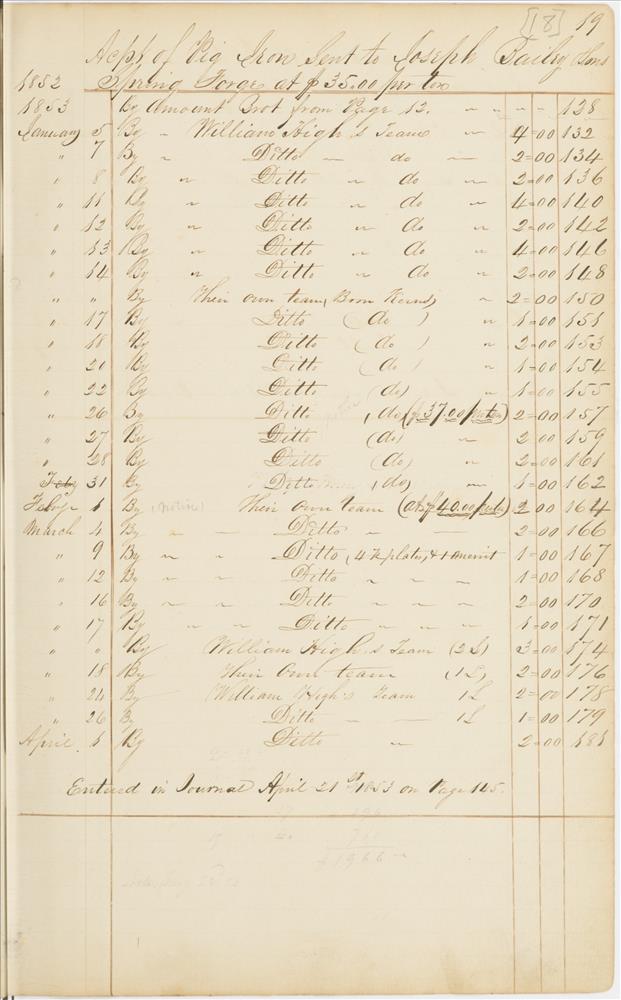 [18] 19
Acpt of Pig Iron Sent to Joseph Bailey & Sons
1852 Spring Forge at $35.00 per ton
1853 By Amount Brot from Page 12. " " " " 128
January 5 By " William High's Team " 4=00 132
" 7 By " Ditto — do — 2=00 134
" 8 By " Ditto " do " 2=00 136
" 11 By " Ditto " do " 4=00 140
" 12 By " Ditto " do " 2=00 142
" 13 By " Ditto " do " 4=00 146
" 14 By " Ditto " do " 2=00 148
" " By Their own team, " 2=00 150
" 17 By Ditto (do) " 1=00 151
" 18 By Ditto (do) " 2=00 153
" 20 By Ditto (do) " 1=00 154
" 22 By Ditto (do) " 1=00 155
" 26 By Ditto (do) ($37.00 per ton) 2=00 157
" 27 By Ditto (do) " 2=00 159
" 28 By Ditto (do) " 2=00 161
Feby 31 By Ditto (do) — 1=00 162
Feby 1 By (notice) Their own team (at $40.00 per ton) 2=00 164
March 4 By " — Ditto " — 2=00 166
" 9 By " " Ditto 1=00 167
" 12 By " " Ditto " " " 1=00 168
" 16 By " " Ditto " " " 2=00 170
" 17 By " " Ditto " " " 1=00 171
" " By William High's Team (2 L) 3=00 174
" 18 By Their own team (1 L) 2=00 176
" 24 By William High's Team 1 L 2=00 178
" 26 By Ditto — — 1 L 1=00 179
April 1 By Ditto " 2=00 181
Entered in Journal April 21st 1853 on Page 145.
760
$1966